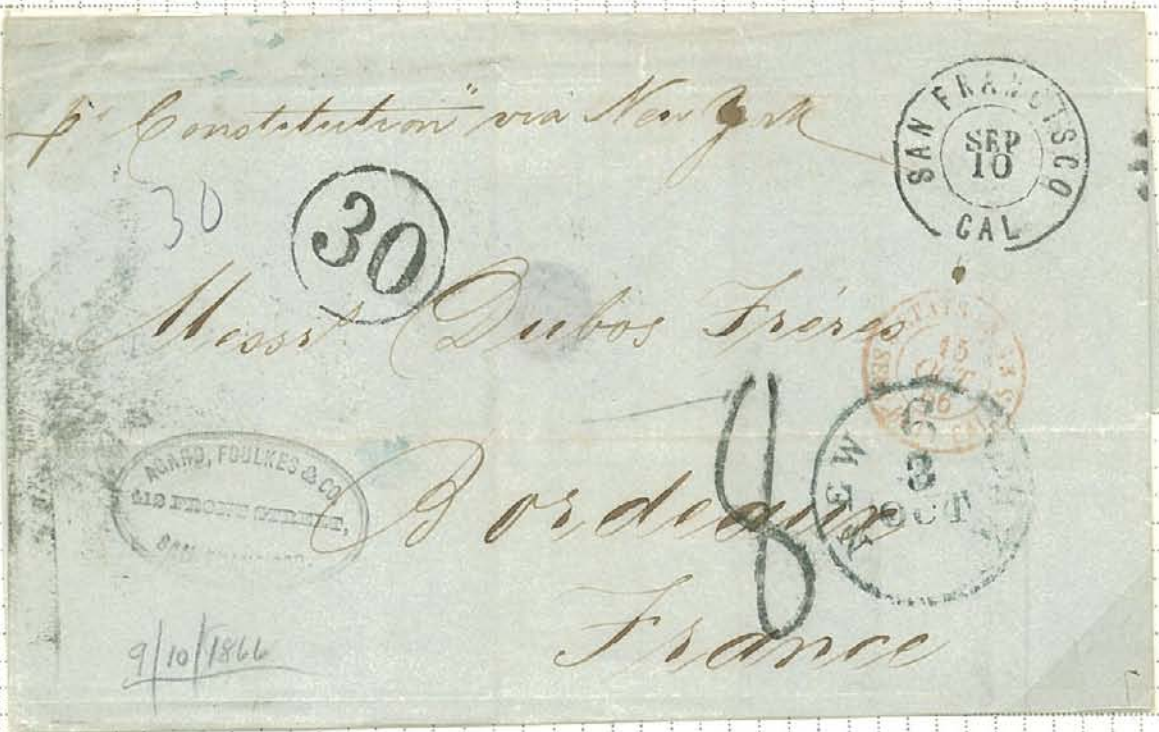 pr "Constitution" via New York
SAN FRANCISCO
SEP
10
CAL
30
30
Messrs Dubos Frères
15
OCT
66
AGARD, FOULKES & CO
412 FRONT STREET,
SAN FRANCISCO.
Bordeaux
8
NEW
6
3
OCT
France
9/10/1866